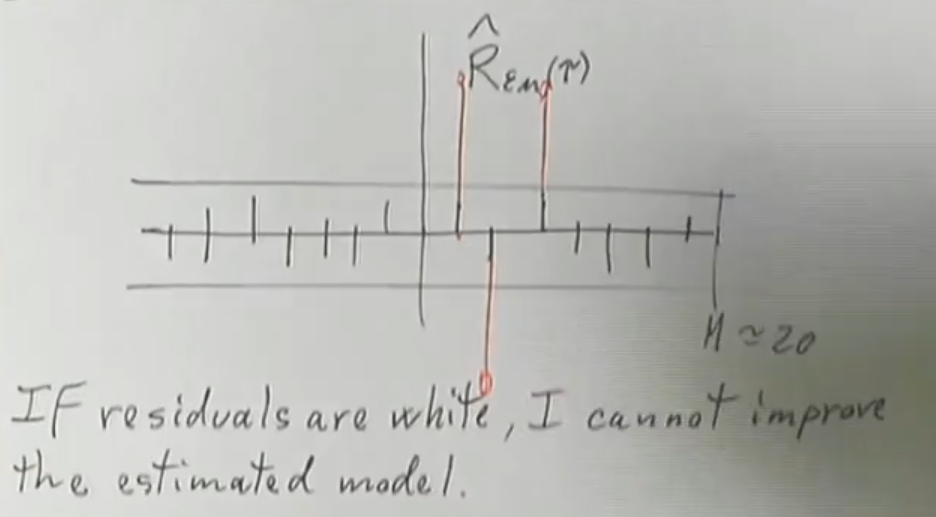 R̂εu(τ)
M ≃ 20
IF residuals are white, I cannot improve
the estimated model.